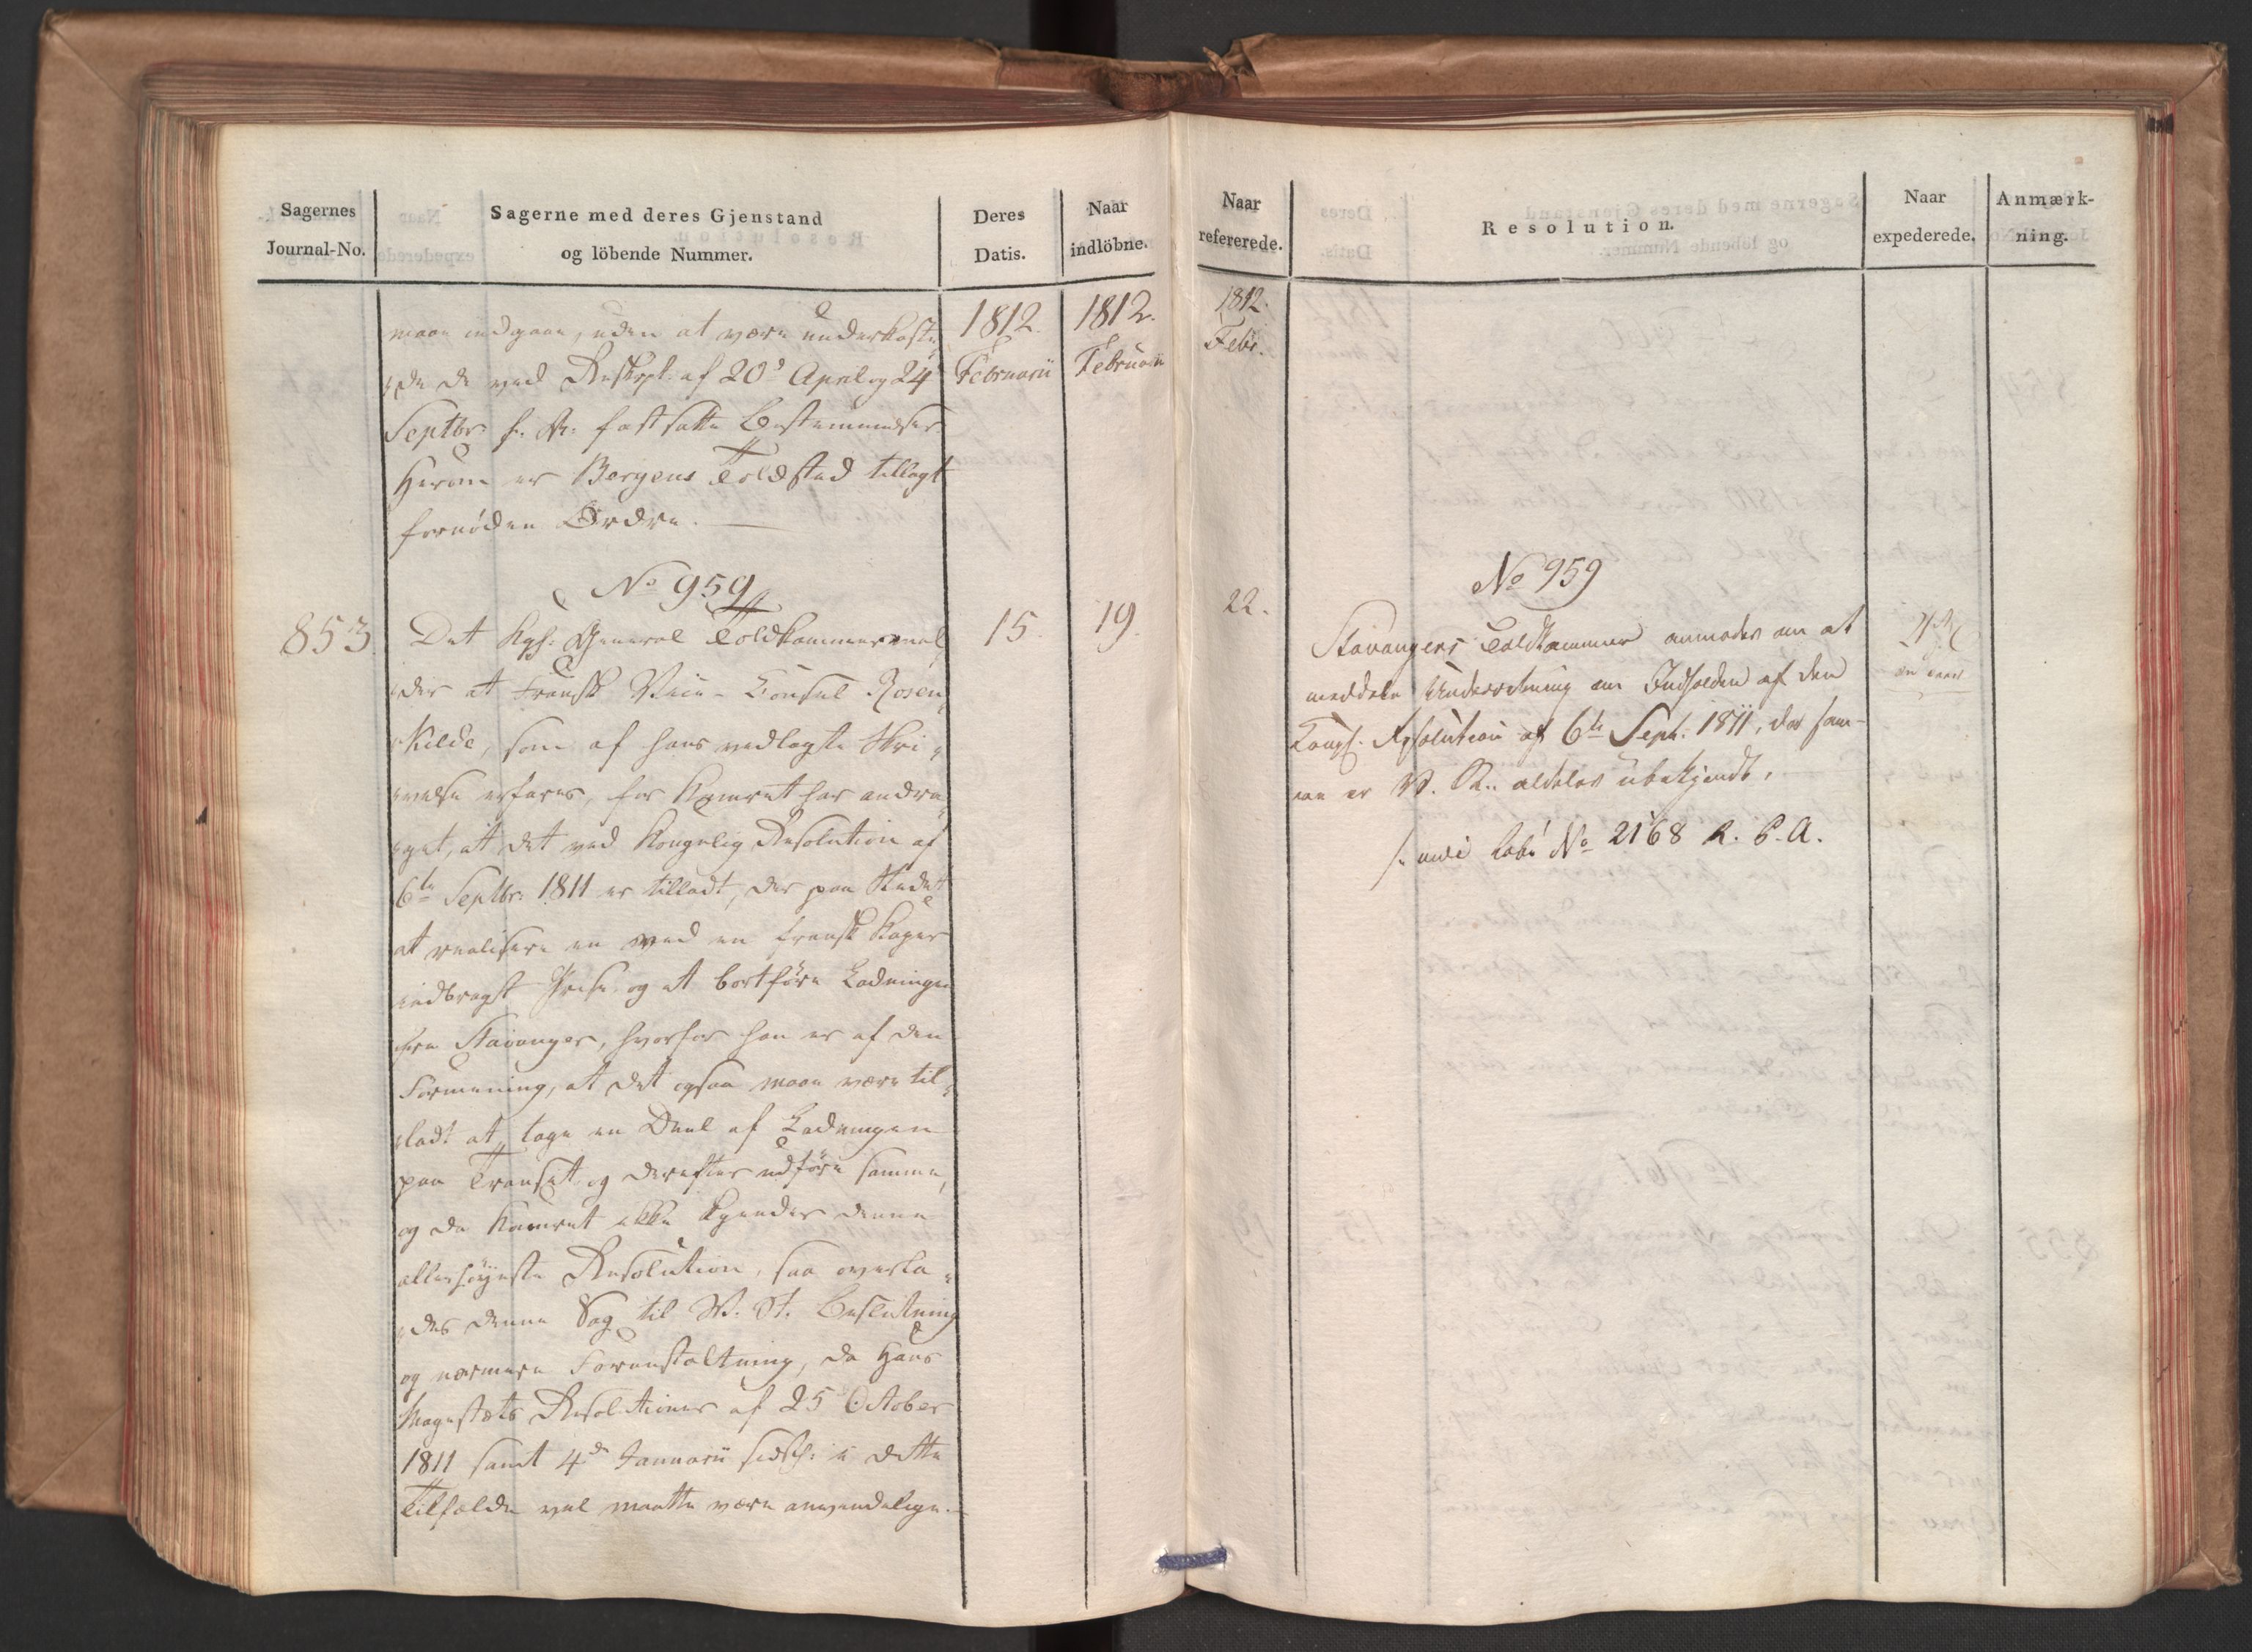 Sagernes
Journal-No.
Sagerne med deres Gjenstand
og löbende Nummer.
Deres
Datis.
Naar
indlöbne.
1812.
Februarii
1812.
Februarii
maae indgaae, uden at være underkaste
de de ved Reskrpt. af 20de April og 24
Septbr. f. A. fastsatte Bestemmelser.
Herom er Bergens Toldsted tillagt
fornöden Ordre.
No 959
853.
15.
19.
Det Kgl. General Toldkammer mel
der at Fransk Vice-Consul Rosen
kilde, som af hans vedlagte Skri
velse erfares, for Kamret har andra
get, at det ved Kongelig Resolution af
6te Septbr. 1811 er tilladt, der paa Stedet
at realisere en med en fransk Kaper
indbragt Prise og at bortföre Ladningen
fra Stavanger, hvorfor han er af den
Formening, at det ogsaa maae være til
ladt at tage en Deel af Ladningen
paa Transit og derefter udföre samme,
og da Kamret ikke kjender denne
allerhöjeste Resolution, saa overla
des denne Sag til V. St. Beslutning
og nærmere Foranstaltning, da Hans
Majestæts Resolutioner af 25 October
1811 samt 4de Januarii sidstl. i dette
Tilfælde vel maatte være anvendelige.
Naar
refererede.
Resolution.
Naar
expederede.
Anmærk-
ning.
1812.
Febr.
22.
No 959
Stavangers Toldkammer anmodes om at
meddele Underretning om Indholden af den
Kongl. Resolution af 6te Sept. 1811, da sam-
me er V. R. aldeles ubekjendt.
No 2168 R. C. A.